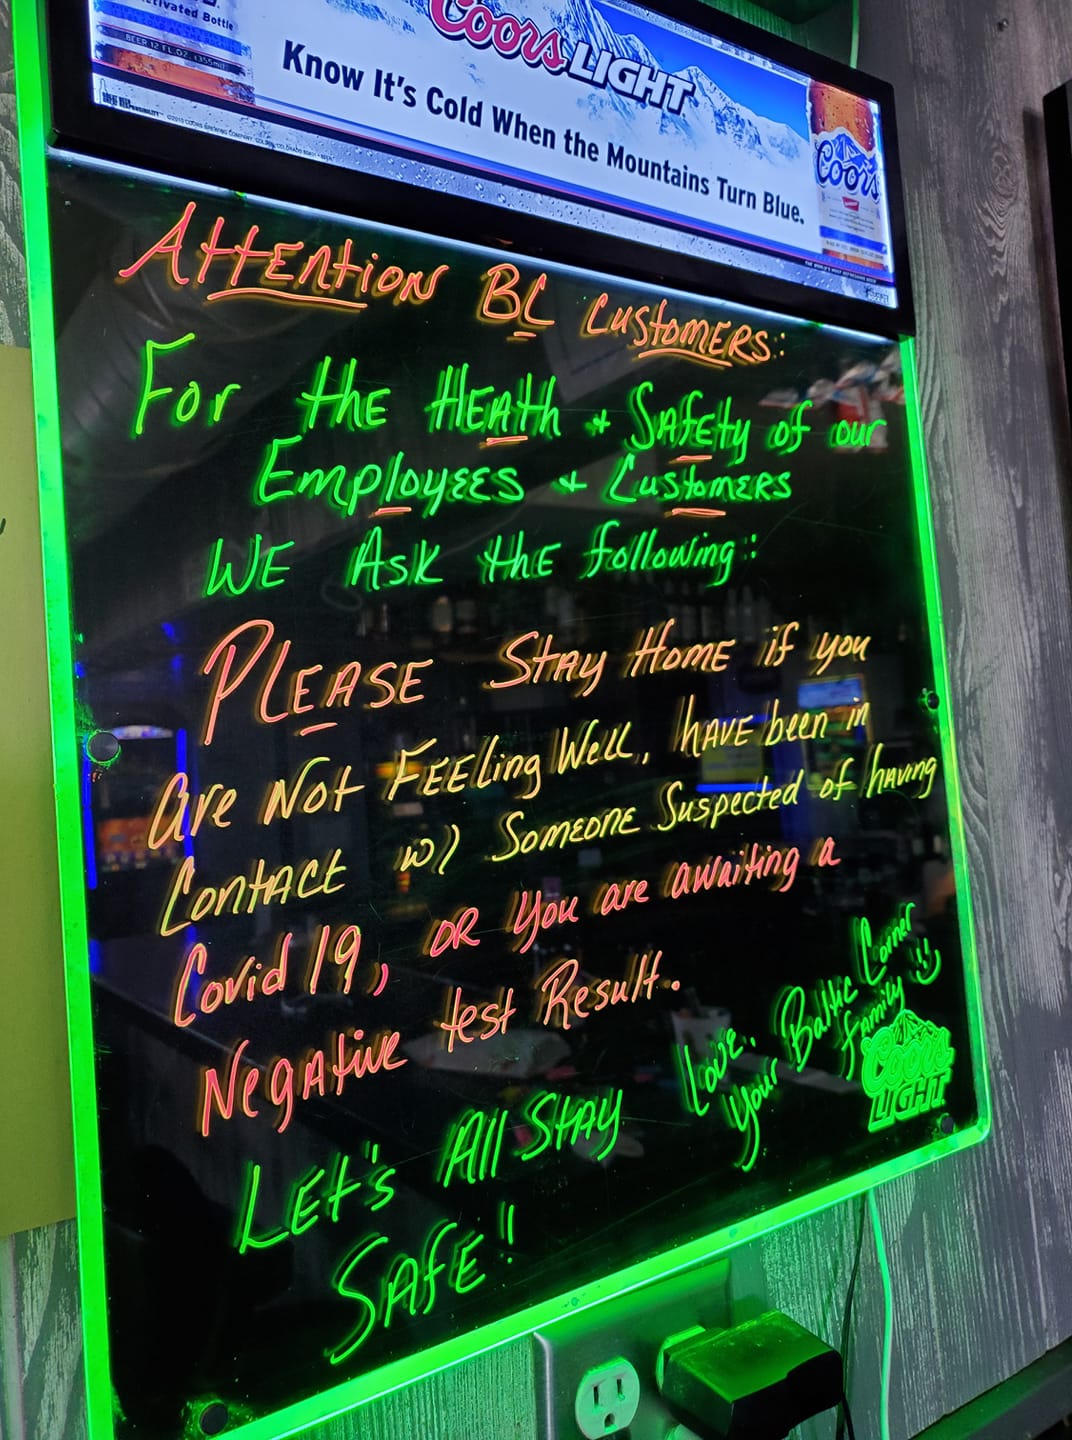 Activated Bottle
BEER 12 FL. OZ. (355ml)
Coors LIGHT
Know It's Cold When the Mountains Turn Blue.
Coors
AttENtiON BC CustOMERS:
For the HEAth + SAfEty of our
EmployEES + CustOMERS
WE Ask the following:
PLEASE Stay Home if you
are Not FEELing Well, have been in
Contact w) SomeONE Suspected of having
Covid 19, or you are awaiting a
Negative test Result.
Let's All Stay
SAfE!!
Love,
Your Baltic Corner
family
Coors
LIGHT